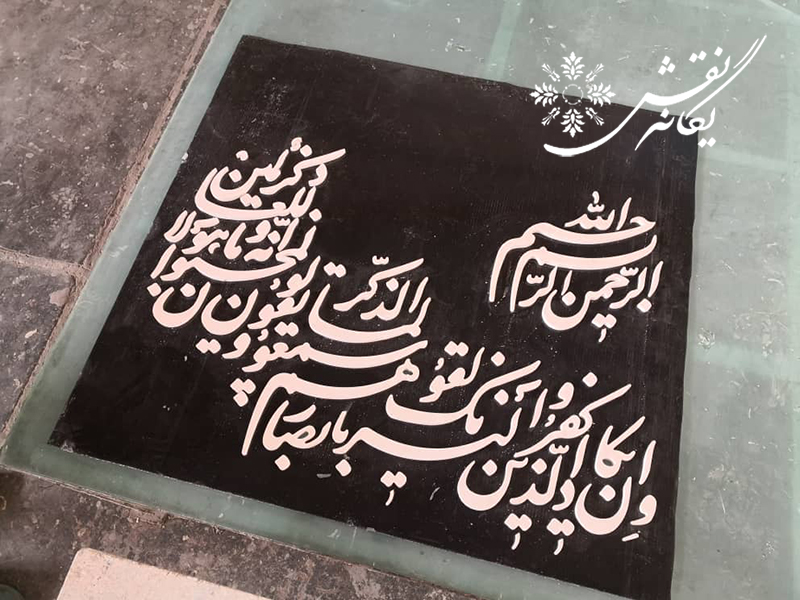 نقش یگانه
بسم الله الرحمن الرحیم
وان یکاد الذین کفروا لیزلقونک بابصارهم
لما سمعوا الذکر و یقولون انه لمجنون
و ما هو الا ذکر للعالمین